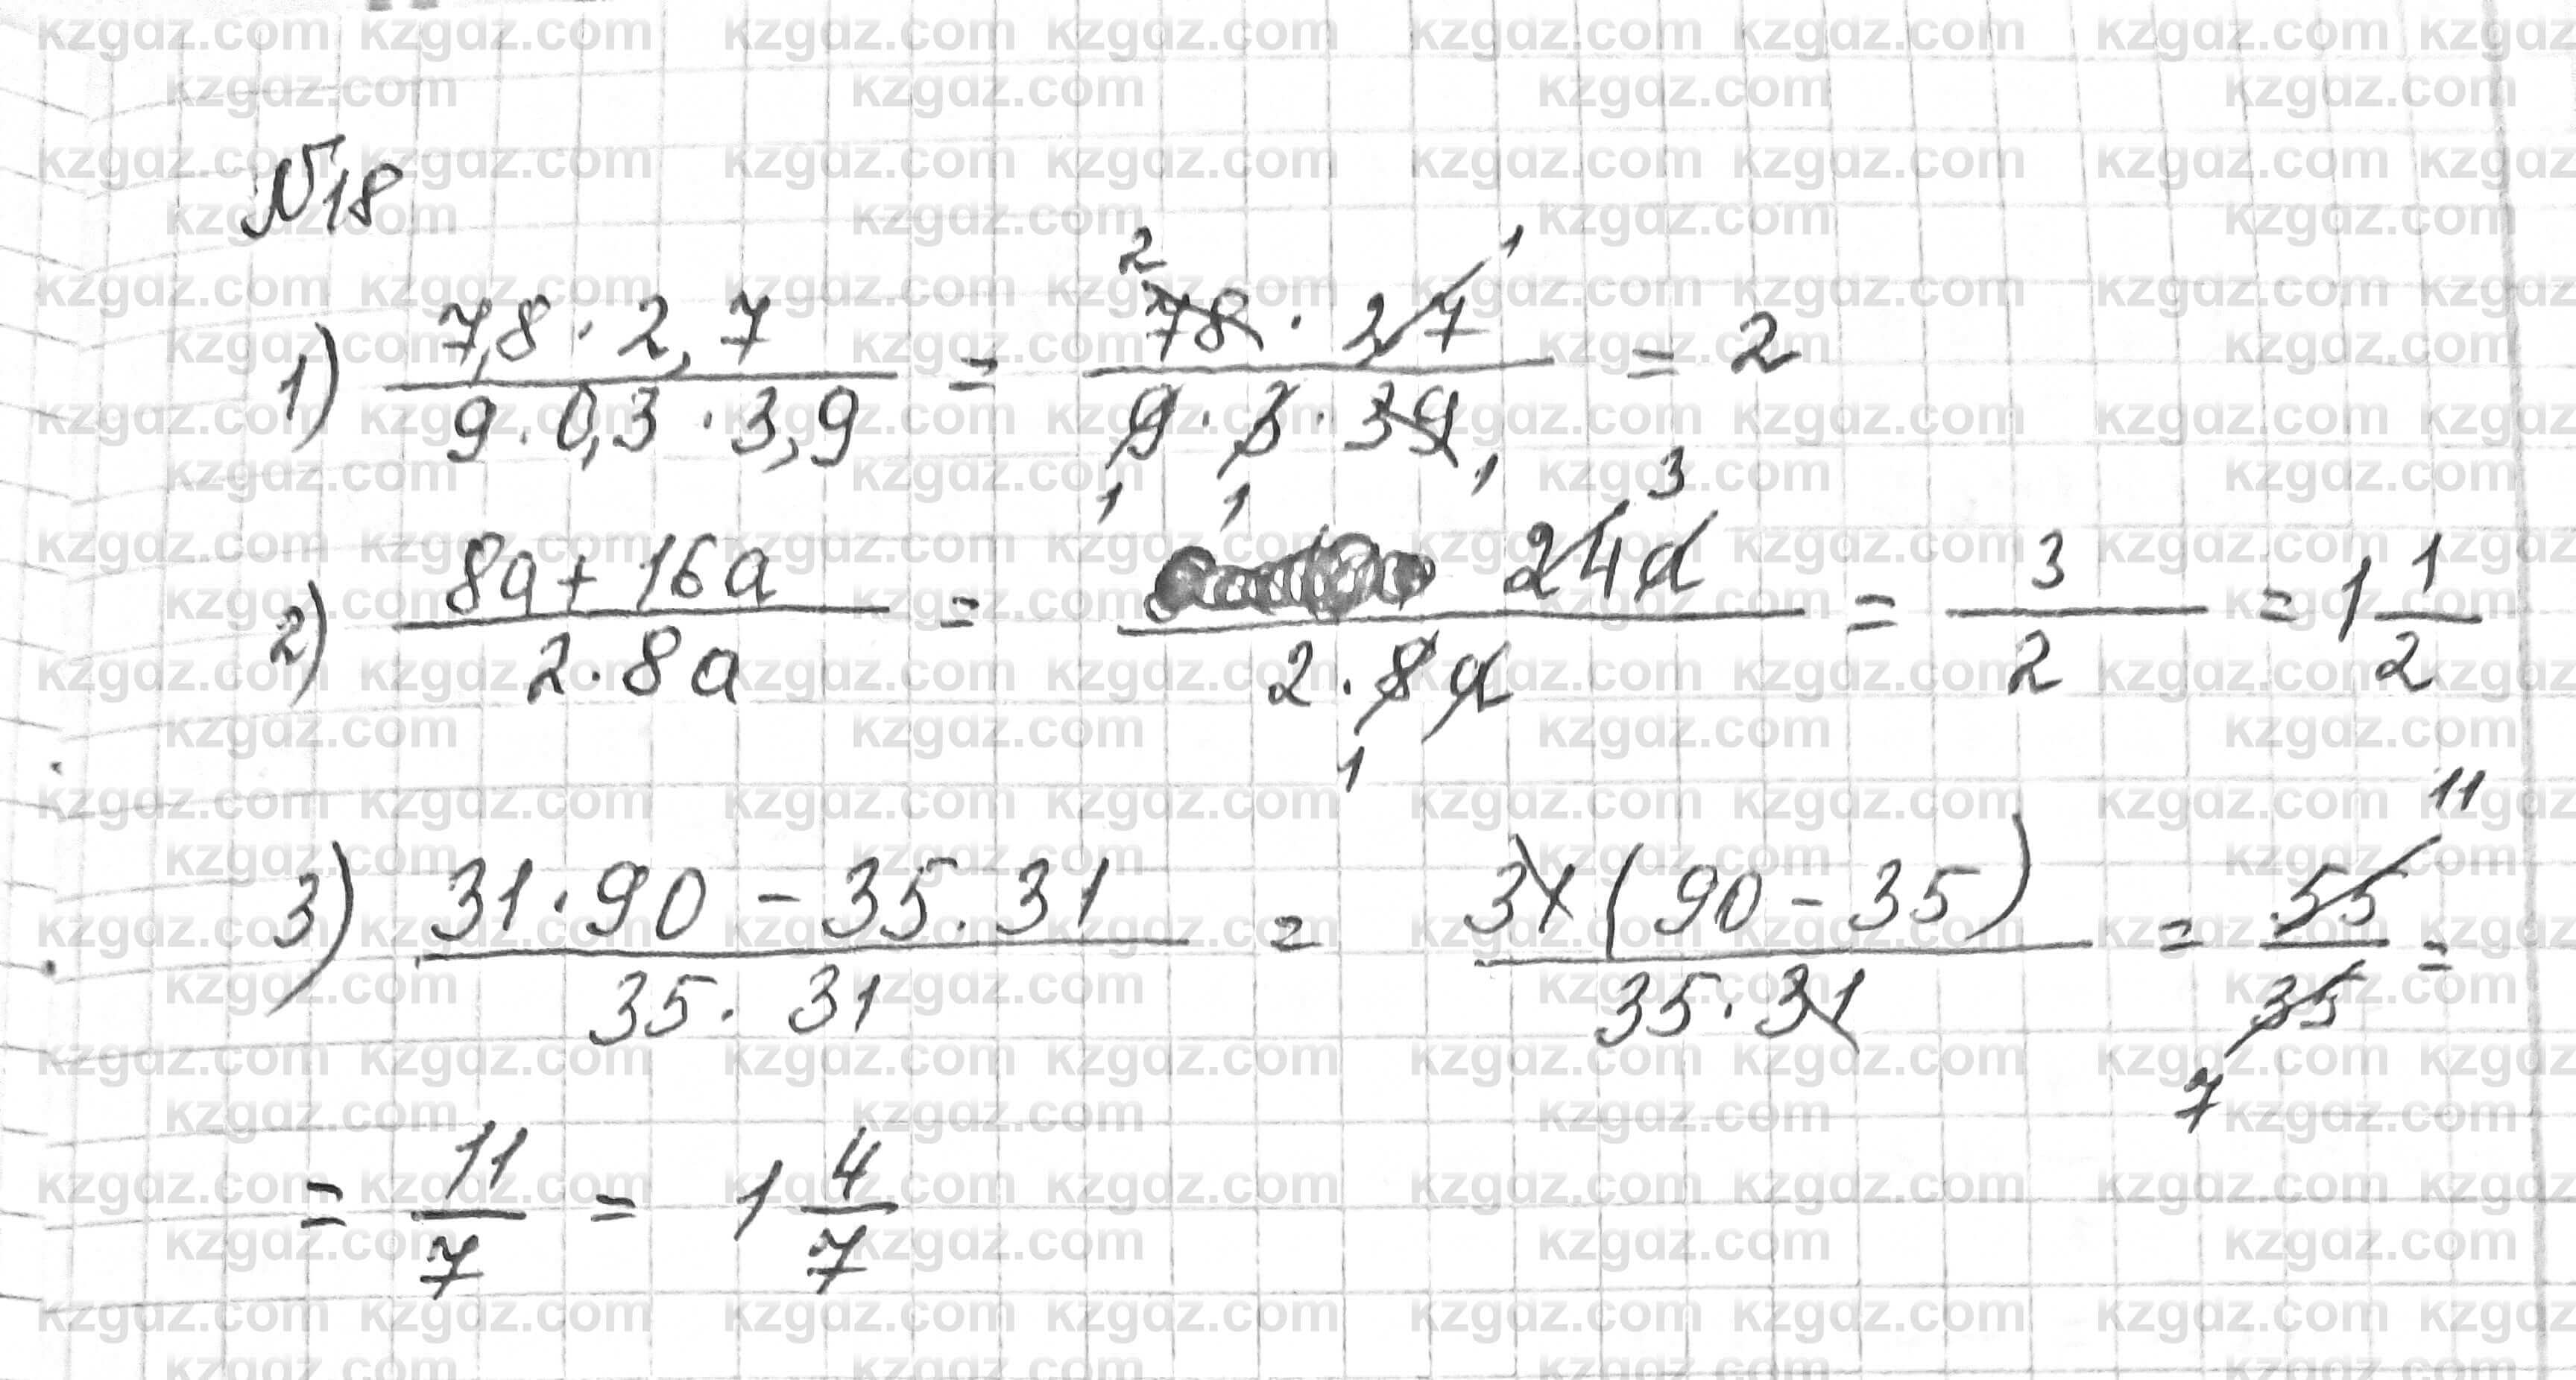 №18
1) 7,8 · 2,7 / 9 · 0,3 · 3,9 = 2 78 · 27 1 / 9 · 3 · 39 1 1 1 = 2
2) 8a + 16a / 2 · 8a = 24a 3 / 2 · 8a 1 = 3 / 2 = 1 1/2
3) 31 · 90 - 35 · 31 / 35 · 31 = 31 (90 - 35) / 35 · 31 = 55 11 / 35 7 =
= 11/7 = 1 4/7
kzgdz.com